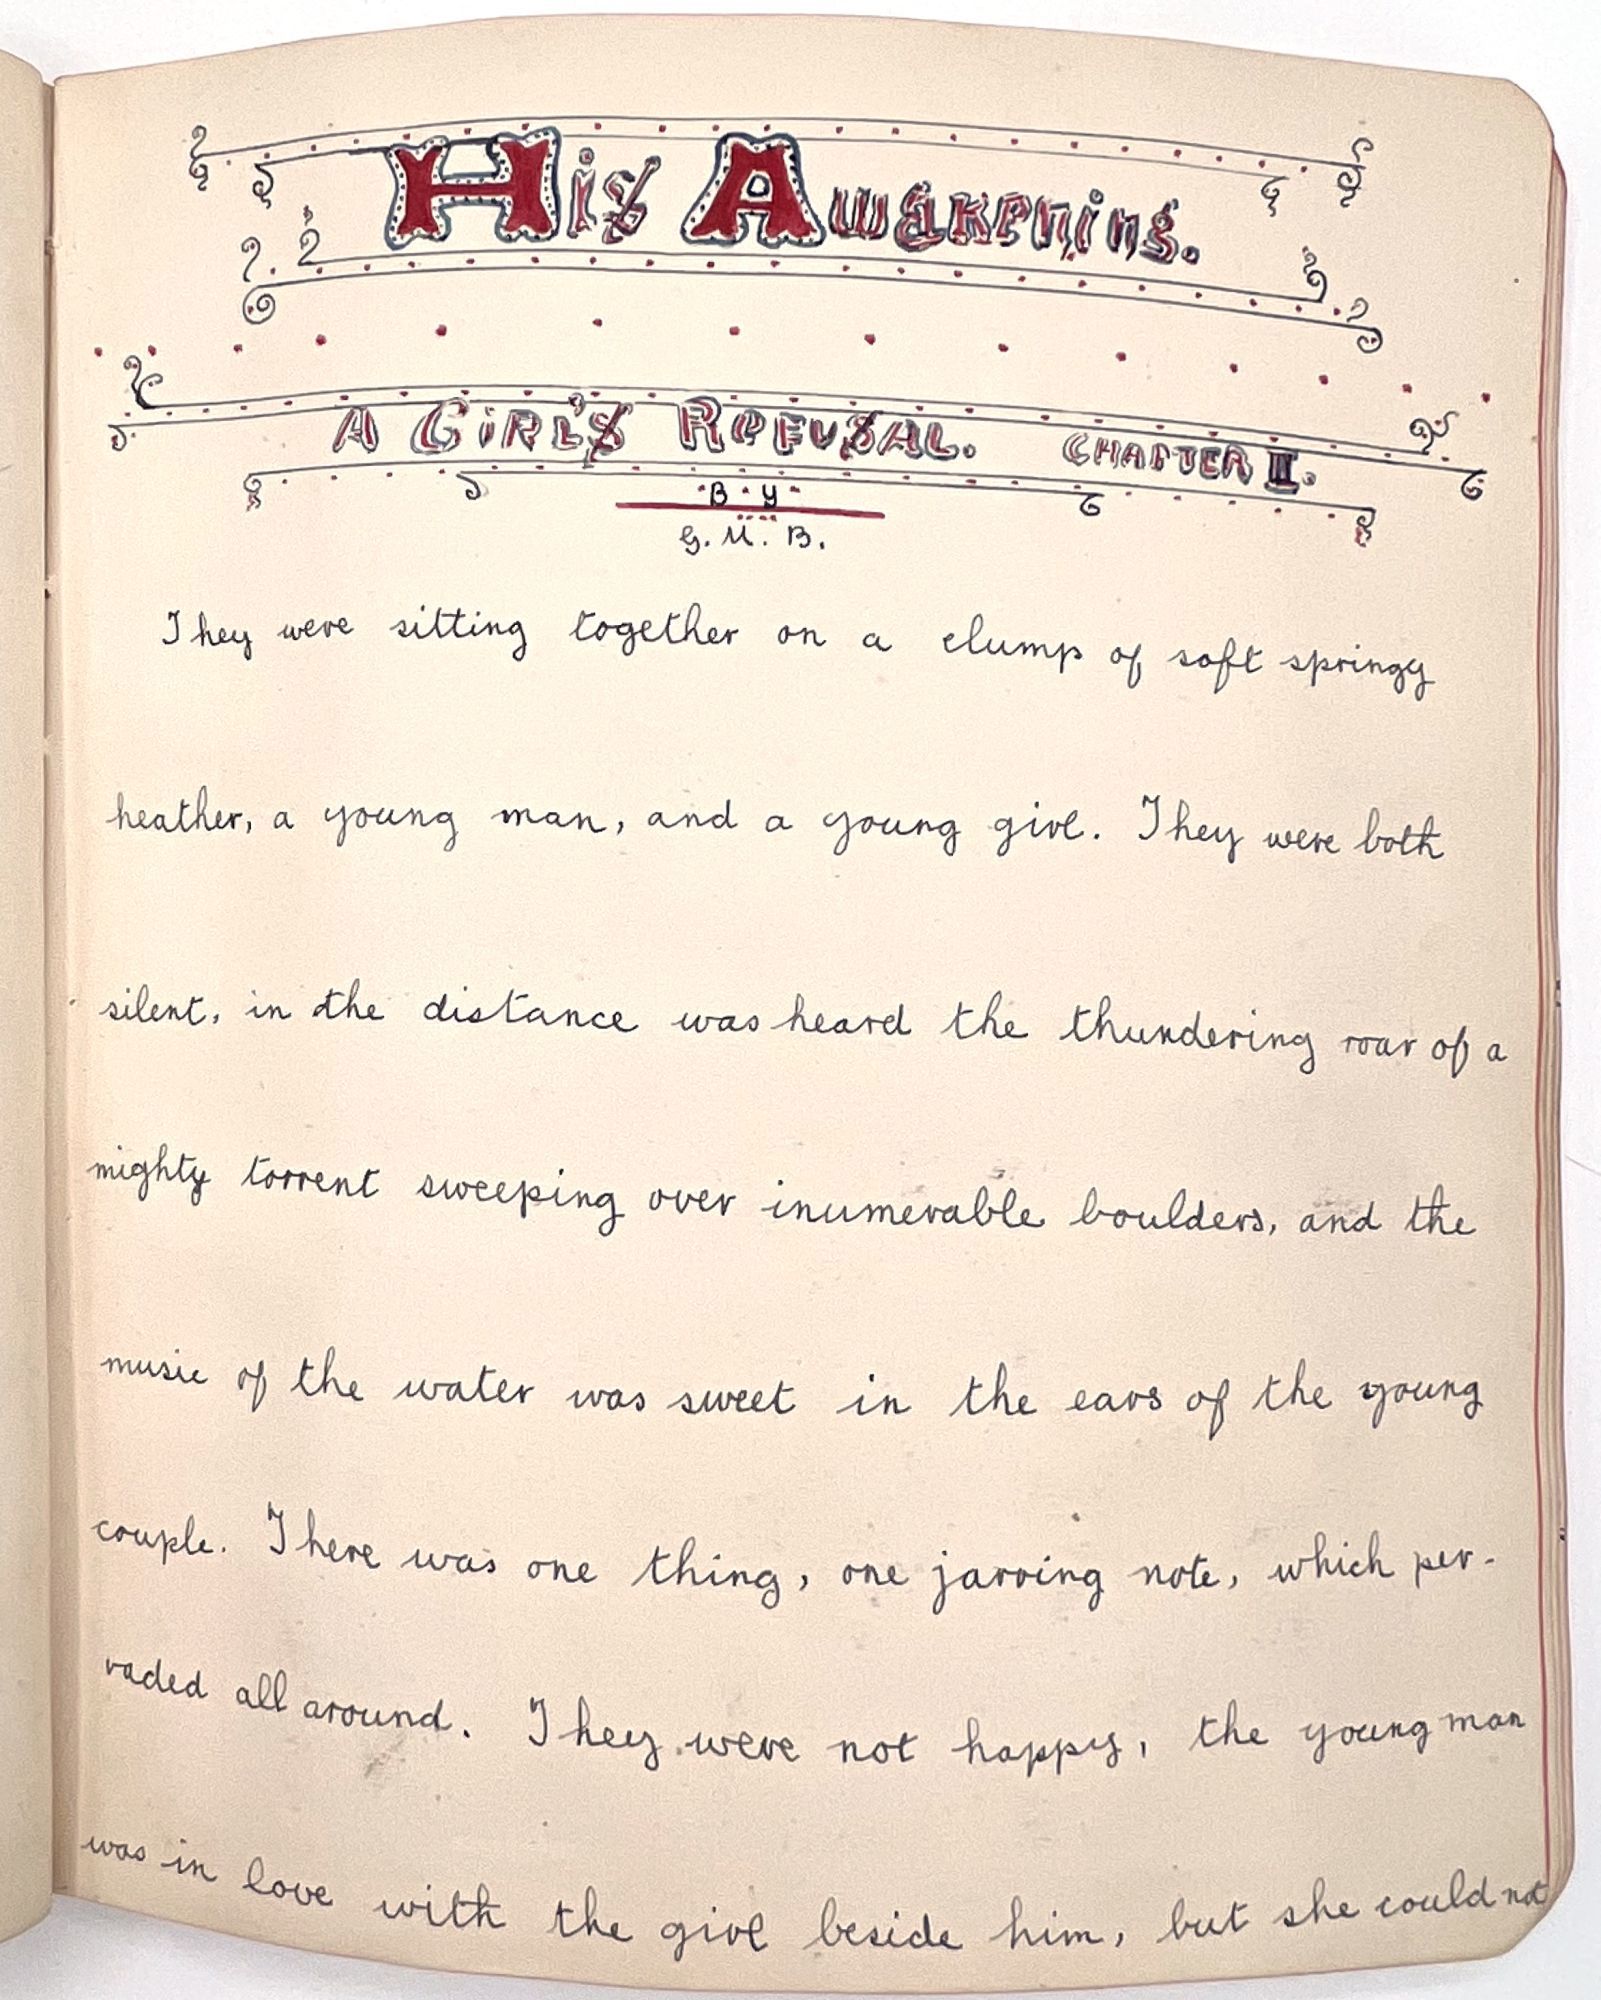 His Awakening.
A Girl's Refusal. Chapter II.
By
G. M. B.
They were sitting together on a clump of soft springy
heather, a young man, and a young girl. They were both
silent, in the distance was heard the thundering roar of a
mighty torrent sweeping over inumerable boulders, and the
music of the water was sweet in the ears of the young
couple. There was one thing, one jarring note, which per-
vaded all around. They were not happy, the young man
was in love with the girl beside him, but she could not